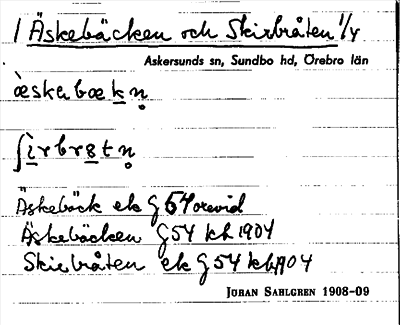 1 Äskebäcken och Skirbråten 1/4
Askersunds sn, Sundbo hd, Örebro län
æ̀skabækn̥
ʃìrbr8tn̥
Äskebäck ek G 54 orevid
Äskebäcken G 54 kb 1904
Skirbråten ek G 54 kb 1904
JOHAN SAHLGREN 1908-09